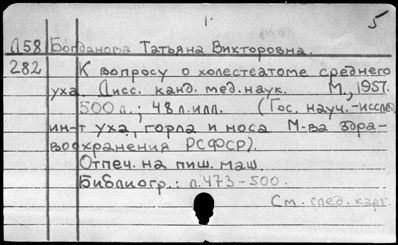 1.
5
Д58 Богданова Татьяна Викторовна.
282 К вопросу о холестеатоме среднего
уха. Дисс. канд. мед. наук. М., 1957.
500 л.; 48 л. илл. (Гос. науч.-исслед.
ин-т уха, горла и носа М-ва здра-
воохранения РСФСР).
Отпеч. на пиш. маш.
Библиогр.: л. 473-500.
См. след. карт.